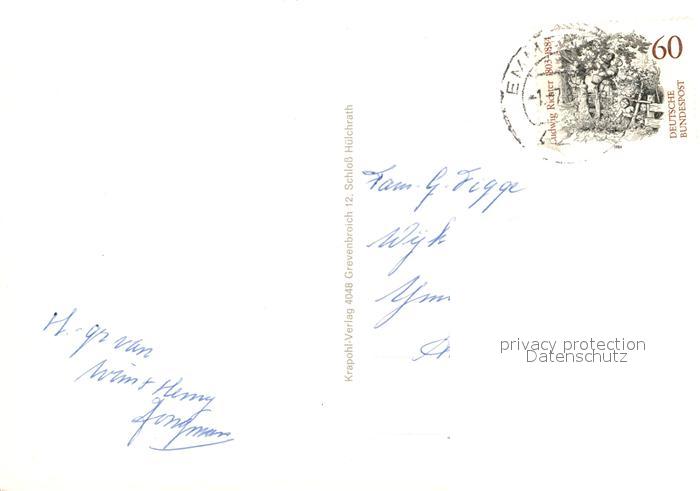 H. gr van
Wim + Henny
Jongman
Krapohl-Verlag 4048 Grevenbroich 12. Schloß Hülchrath
EMM
Ludwig Richter 1803-1884
60
DEUTSCHE
BUNDESPOST
Fam. G.
Wijk
privacy protection
Datenschutz